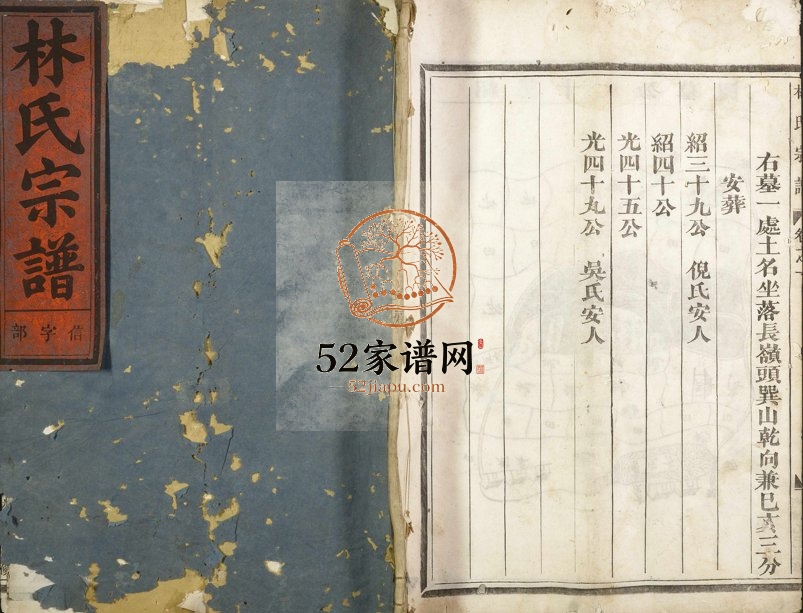 林氏宗譜
信字部
林氏宗譜
右墓一處土名坐落長嶺頭巽山乾向兼巳亥三分
安葬
紹三十九公 倪氏安人
紹四十公
光四十五公
光四十九公 吳氏安人
52家谱网
52jiapu.com